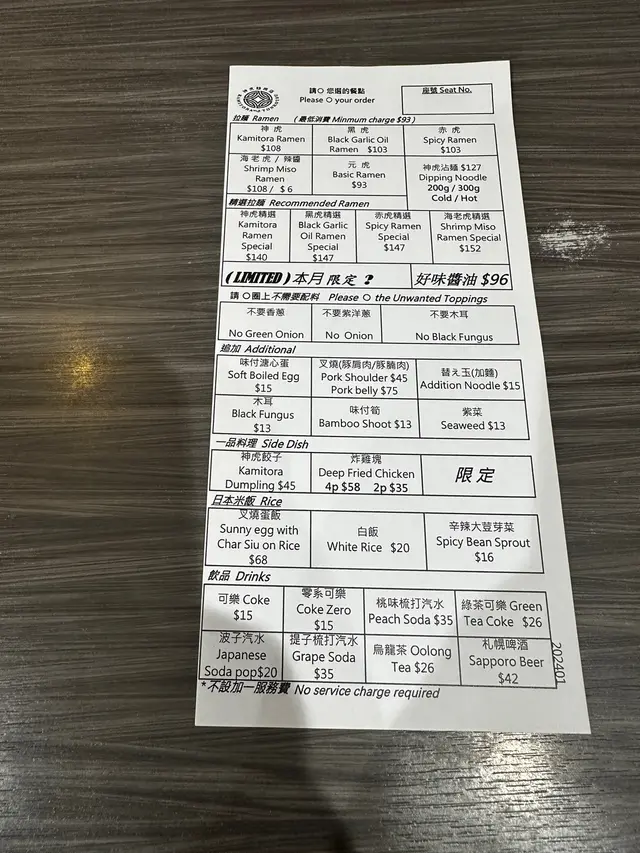 請〇 您選的餐點
Please 〇 your order
座號 Seat No.
拉麵 Ramen (最低消費 Minmum charge $93)
神 虎
Kamitora Ramen
$108
黑 虎
Black Garlic Oil
Ramen $103
赤 虎
Spicy Ramen
$103
海 老 虎 / 辣醬
Shrimp Miso
Ramen
$108 / $ 6
元 虎
Basic Ramen
$93
神虎沾麵 $127
Dipping Noodle
200g / 300g
Cold / Hot
精選拉麵 Recommended Ramen
神虎精選
Kamitora
Ramen
Special
$140
黑虎精選
Black Garlic
Oil Ramen
Special
$147
赤虎精選
Spicy Ramen
Special
$147
海老虎精選
Shrimp Miso
Ramen Special
$152
(LIMITED) 本月 限定 ?
好味醬油 $96
請 〇圈上不需要配料 Please 〇 the Unwanted Toppings
不要香蔥
No Green Onion
不要紫洋蔥
No Onion
不要木耳
No Black Fungus
追加 Additional
味付溏心蛋
Soft Boiled Egg
$15
叉燒(豚肩肉/豚腩肉)
Pork Shoulder $45
Pork belly $75
替え玉(加麵)
Addition Noodle $15
木耳
Black Fungus
$13
味付筍
Bamboo Shoot $13
紫菜
Seaweed $13
一品料理 Side Dish
神虎餃子
Kamitora
Dumpling $45
炸雞塊
Deep Fried Chicken
4p $58 2p $35
限 定
日本米飯 Rice
叉燒蛋飯
Sunny egg with
Char Siu on Rice
$68
白飯
White Rice $20
辛辣大荳芽菜
Spicy Bean Sprout
$16
飲品 Drinks
可樂 Coke
$15
零系可樂
Coke Zero
$15
桃味梳打汽水
Peach Soda $35
綠茶可樂 Green
Tea Coke $26
波子汽水
Japanese
Soda pop$20
提子梳打汽水
Grape Soda
$35
烏龍茶 Oolong
Tea $26
札幌啤酒
Sapporo Beer
$42
*不設加一服務費 No service charge required
202401